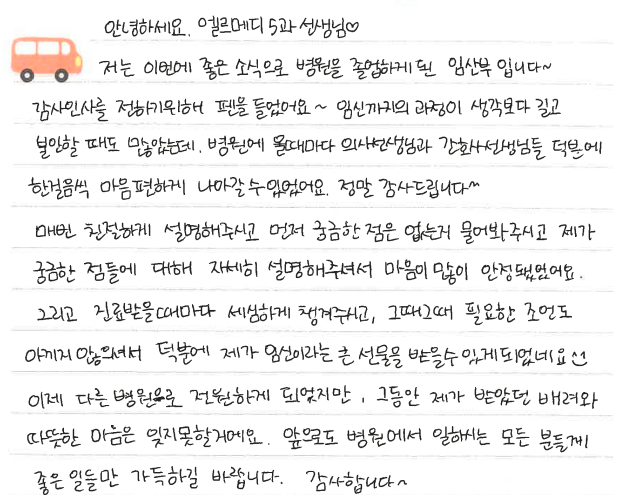 안녕하세요. 엘르메디 5과 선생님♡
저는 이번에 좋은 소식으로 병원을 졸업하게 된 임산부 입니다~
감사인사를 전하기위해 펜을 들었어요~ 임신까지의 과정이 생각보다 길고
불안할 때도 많았는데, 병원에 올때마다 의사선생님과 간호사선생님들 덕분에
한걸음씩 마음편하게 나아갈 수 있었어요. 정말 감사드립니다~
매번 친절하게 설명해주시고 먼저 궁금한 점은 없는지 물어봐주시고 제가
궁금한 점들에 대해 자세히 설명해주셔서 마음이 많이 안정됐었어요.
그리고 진료받을때마다 세심하게 챙겨주시고, 그때그때 필요한 조언도
아끼지 않으셔서 덕분에 제가 임신이라는 큰 선물을 받을수 있게되었네요 ^^
이제 다른 병원으로 전원하게 되었지만, 그동안 제가 받았던 배려와
따뜻한 마음은 잊지못할거에요. 앞으로도 병원에서 일하시는 모든 분들께
좋은 일들만 가득하길 바랍니다. 감사합니다~